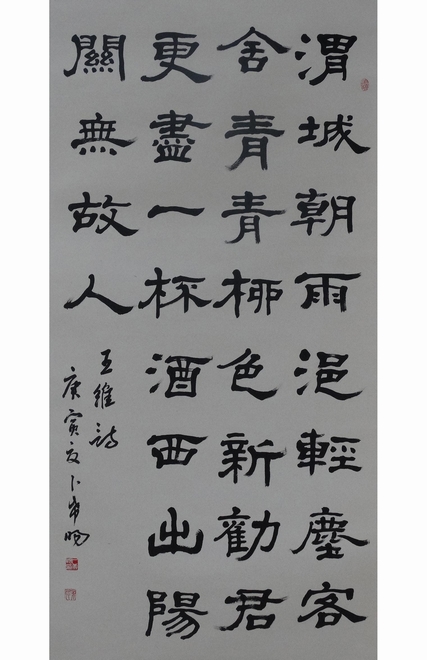 渭城朝雨浥輕塵客
舍青青柳色新勸君
更盡一杯酒西出陽
關無故人
王維詩
庚寅夏卜希暘